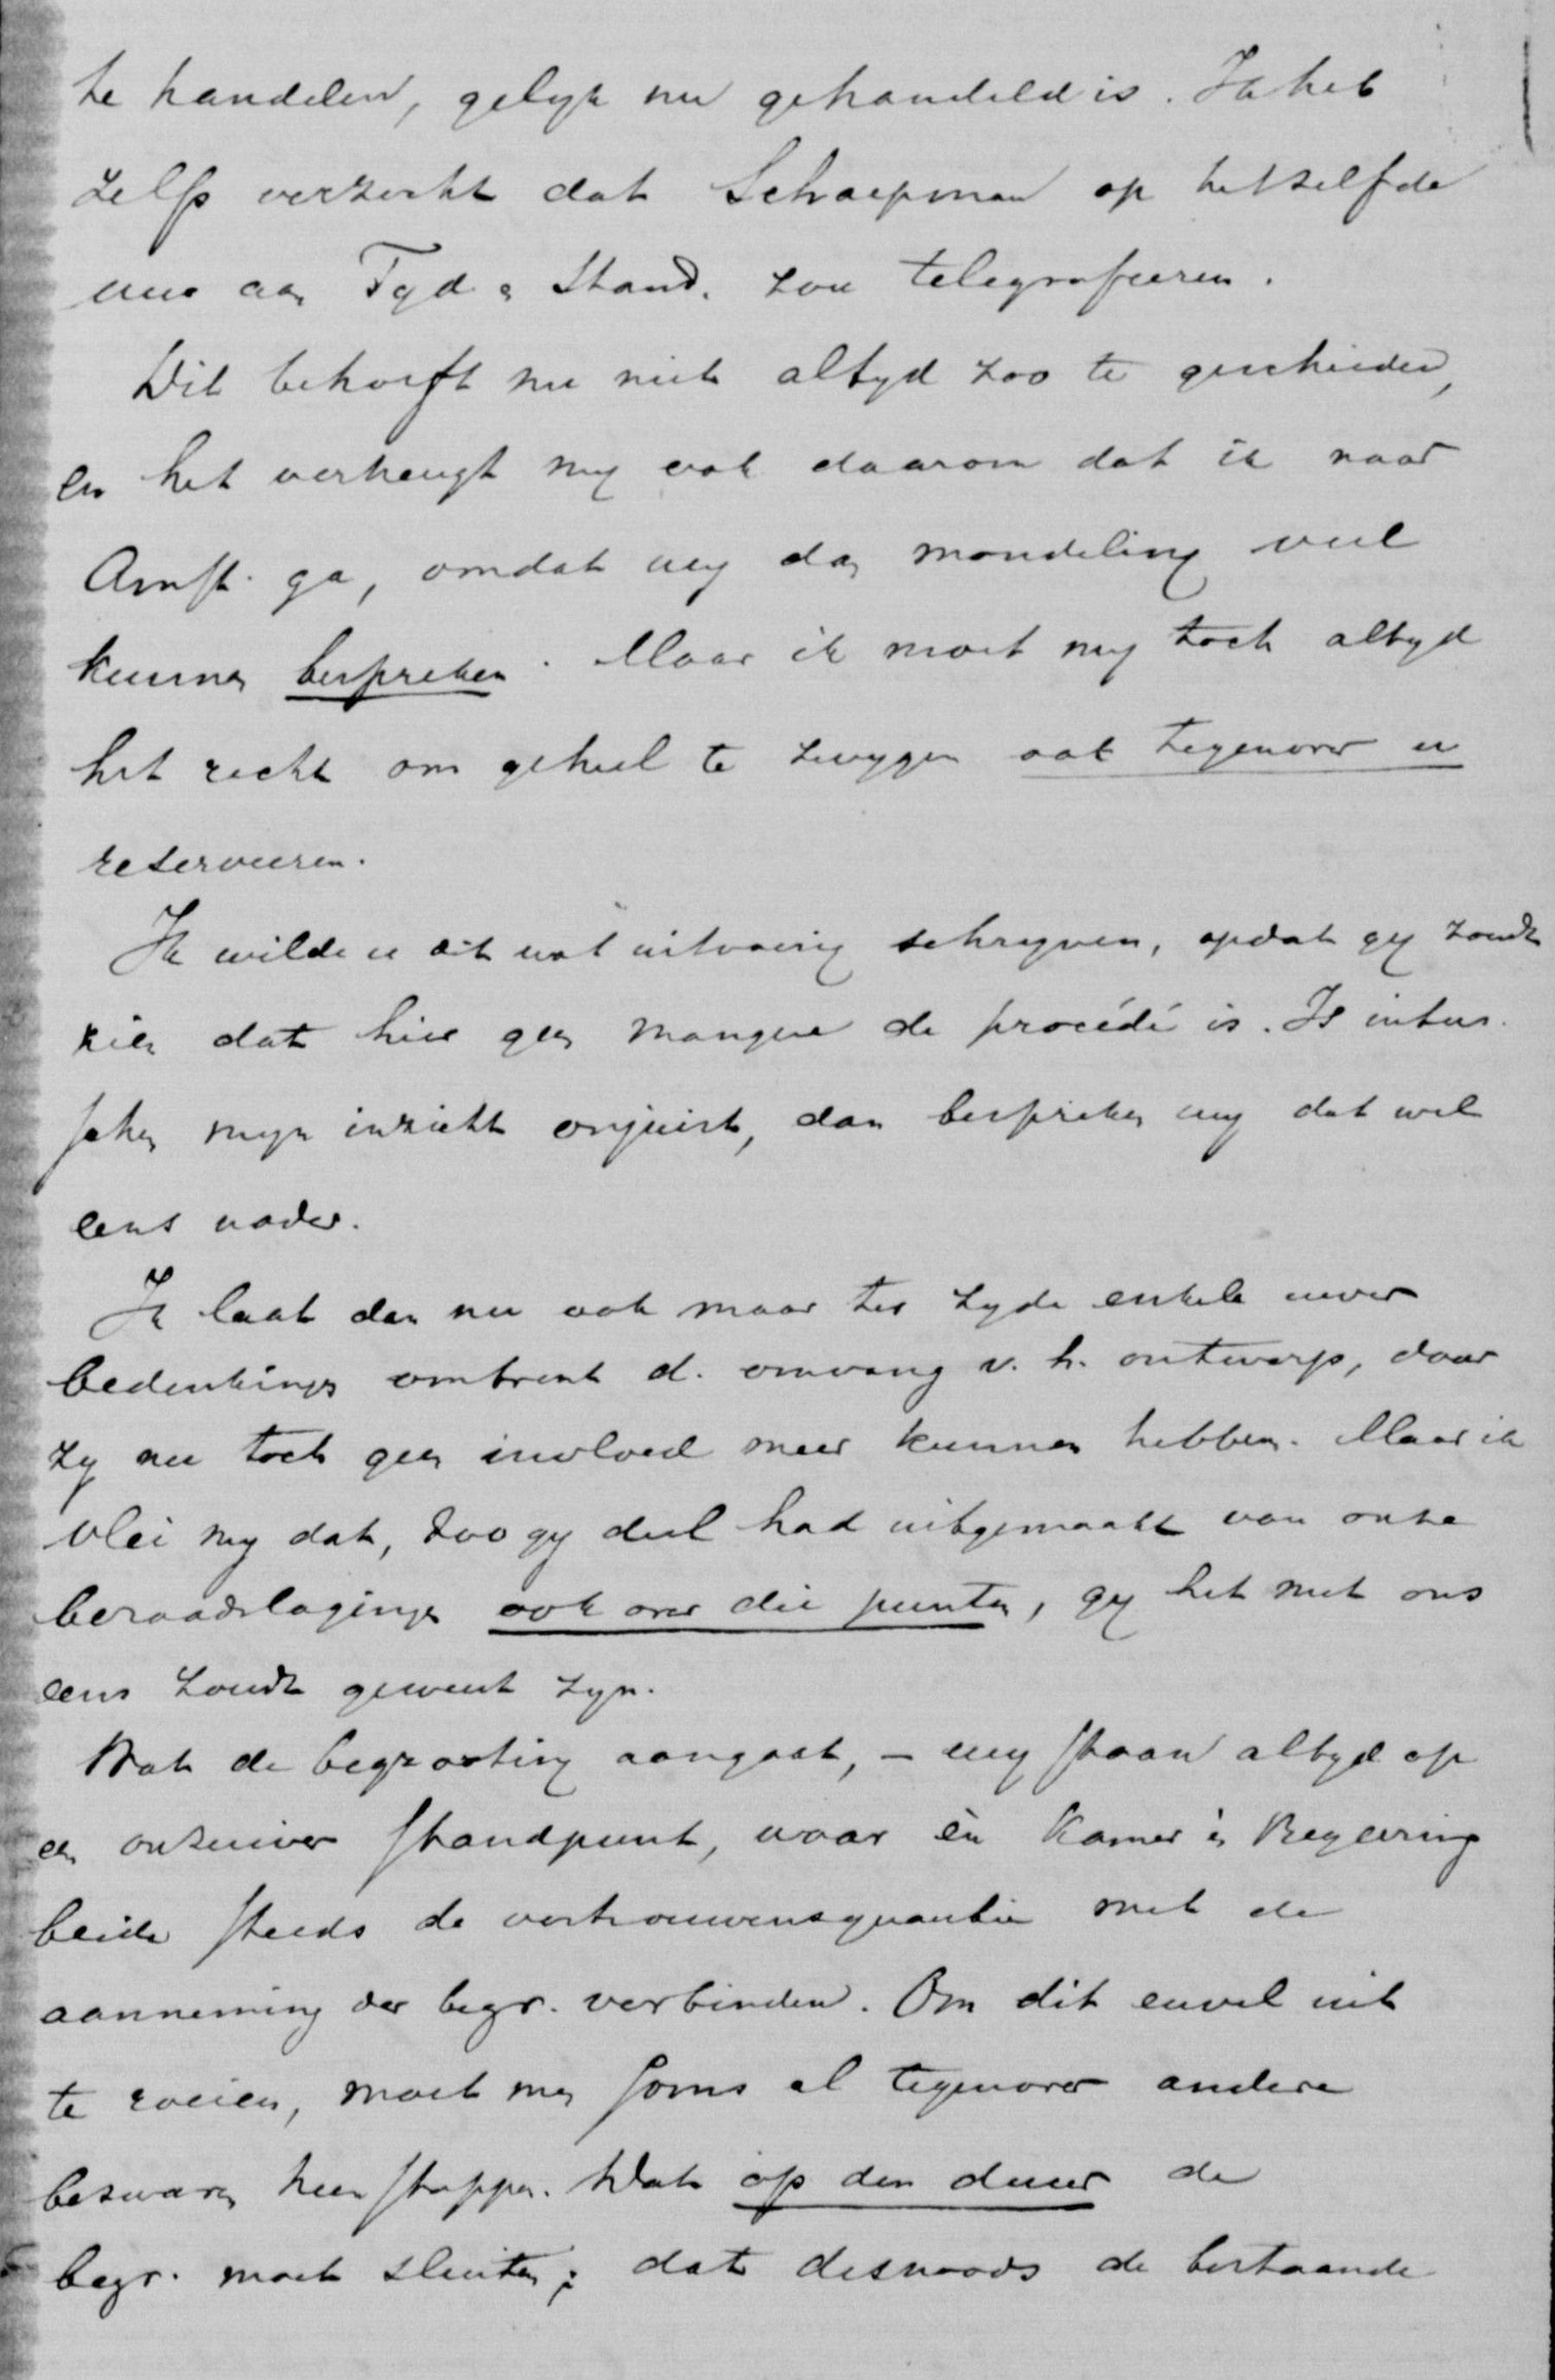 te handelen, gelyk nu gehandeld is. Ik heb
zelfs verzocht dat Schaepman op hetzelfde
uur aan Tyd & Stand. zou telegrafeeren.
Dit behoeft nu niet altyd zoo te geschieden,
en het verheugt my ook daarom dat ik naar
Amst. ga, omdat wy dan mondeling veel
kunnen bespreken. Maar ik moet my toch altyd
het recht om geheel te zwygen ook tegenover u
reserveeren.
Ik wilde u dit wat uitvoerig schryven, opdat gy zoudt
zien dat hier geen manque de procédé is. Is intus-
schen myn inzicht onjuist, dan bespreken wy dat wel
eens nader.
Ik laat dan nu ook maar ter zyde enkele uwer
bedenkingen omtrent d. omvang v. h. ontwerp, daar
zy nu toch geen invloed meer kunnen hebben. Maar ik
vlei my dat, zoo gy deel had uitgemaakt van onze
beraadslagingen ook over die punten, gy het met ons
eens zoudt geweest zyn.
Wat de begrooting aangaat, – wy staan altyd op
een onzuiver standpunt, waar èn Kamer èn Regeering
beide steeds de vertrouwensquaestie met de
aanneming der begr. verbinden. Om dit euvel uit
te roeien, moet men soms al tegenover andere
bezwaren heen stappen. Dat op den duur de
begr. moet sluiten; dat desnoods de bestaande